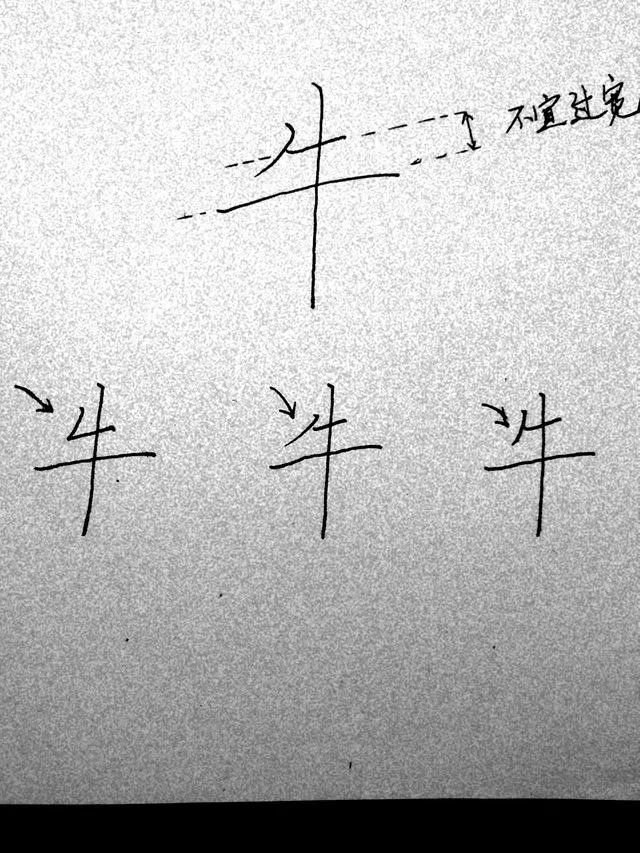 牛 不宜过宽
牛 牛 牛